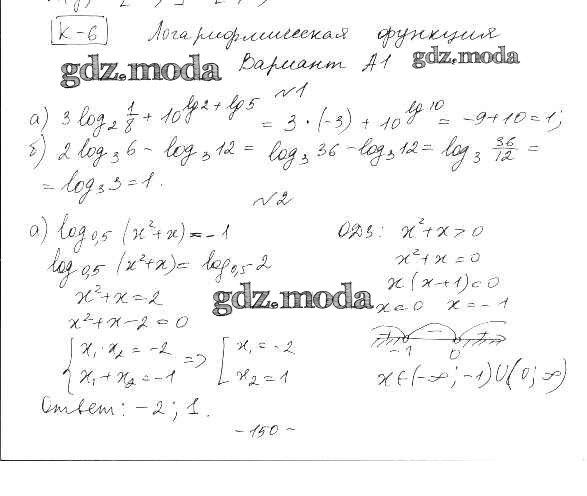 К-6 Логарифмическая функция
gdz.moda Вариант А1 gdz.moda
№1
а) 3 log₂ 1/8 + 10^(lg2 + lg5) = 3·(-3) + 10^(lg 10) = -9+10=1;
б) 2 log₃ 6 - log₃ 12 = log₃ 36 - log₃ 12 = log₃ 36/12 =
= log₃ 3 = 1.
№2
а) log₀,₅ (x²+x) = -1 ОДЗ: x²+x > 0
log₀,₅ (x²+x) = log₀,₅ 2 x²+x = 0
x²+x = 2 gdz.moda x(x+1) = 0
x²+x-2 = 0 x=0 x=-1
{ x₁·x₂ = -2 => [ x₁ = -2 - -1 0
x₁+x₂ = -1 x₂ = 1 x∈(-∞; -1)∪(0; ∞)
Ответ: -2; 1.
- 150 -